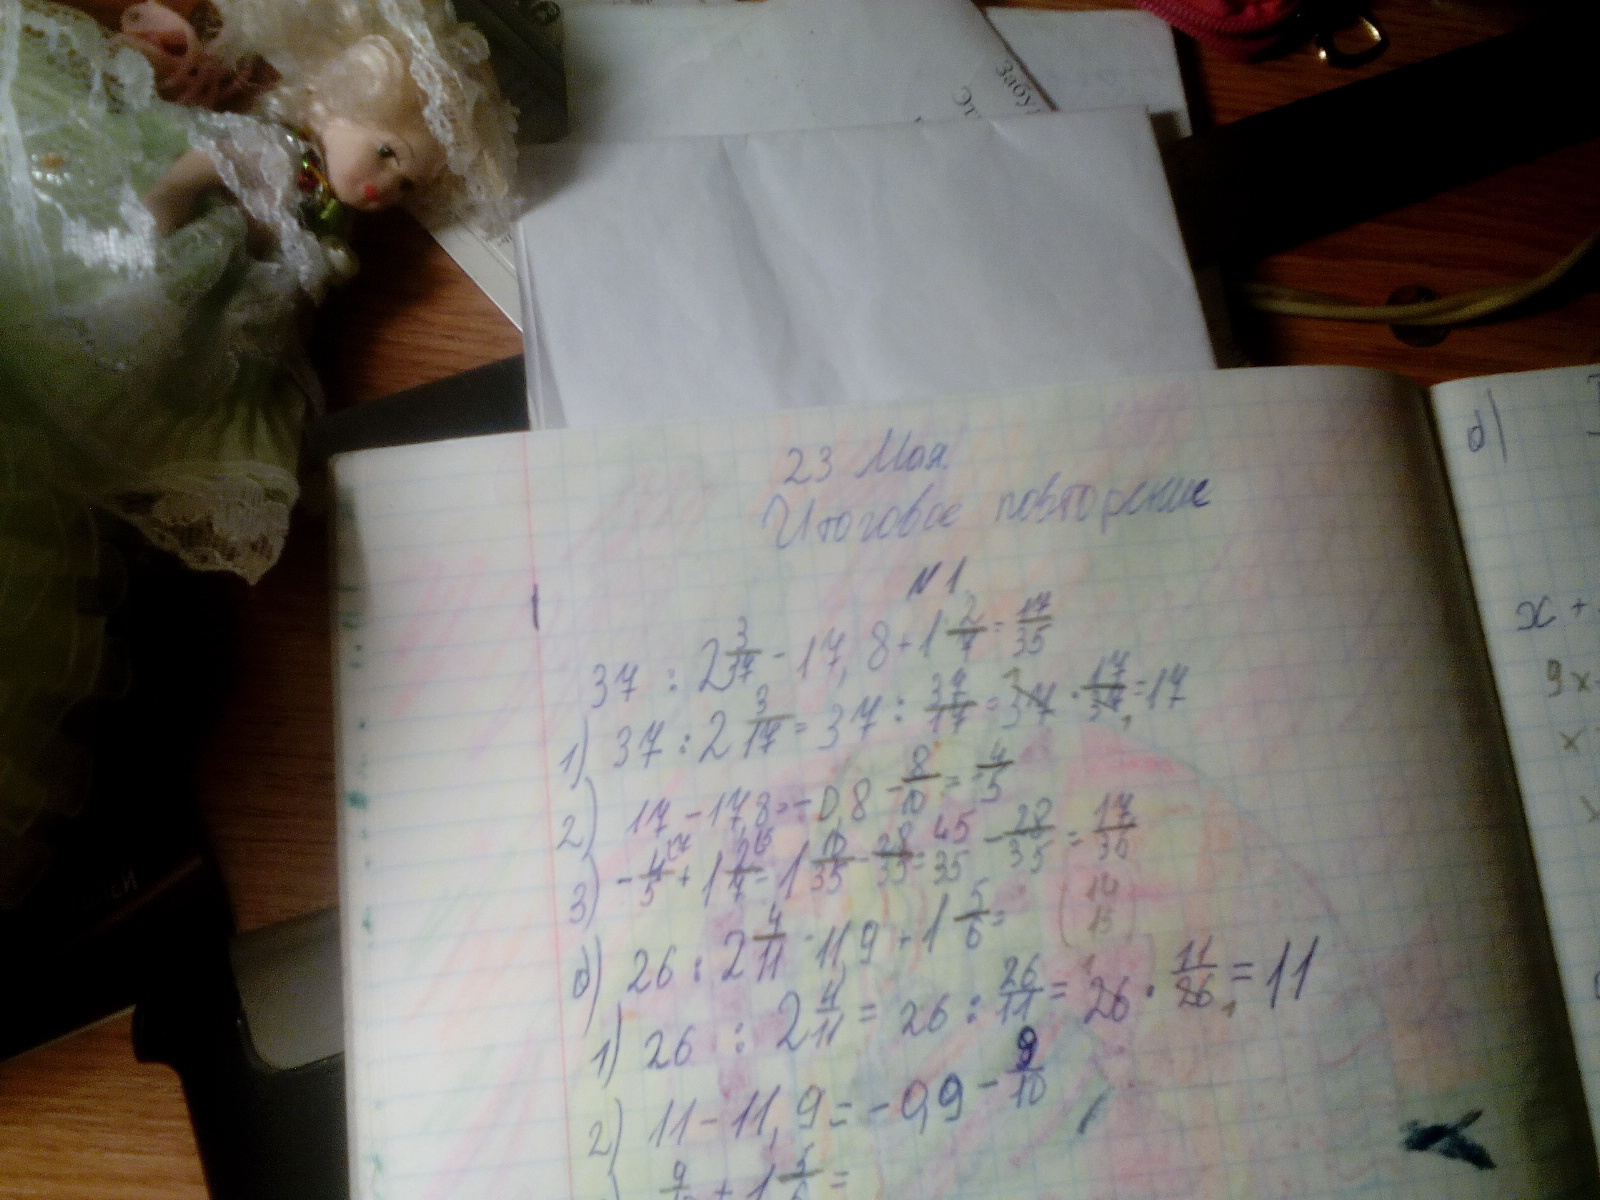 Забу
Эт
23 Мая
Итоговое повторение
N 1
37 : 2 3/17 - 17,8 + 1 2/7 = 17/35
1) 37 : 2 3/17 = 37 : 37/17 = 37 · 17/37 = 17
2) 17 - 17,8 = -0,8 - 8/10 = -4/5
3) - 4/5 + 1 2/7 = 1 10/35 - 28/35 = 45/35 - 28/35 = 17/35
б) 26 : 2 4/11 - 11,9 + 1 5/6 = (14/15)
1) 26 : 2 4/11 = 26 : 26/11 = 26 · 11/26 = 11
2) 11 - 11,9 = -0,9 - 9/10
+ 1 5/6 =
б)
x +
9x
x